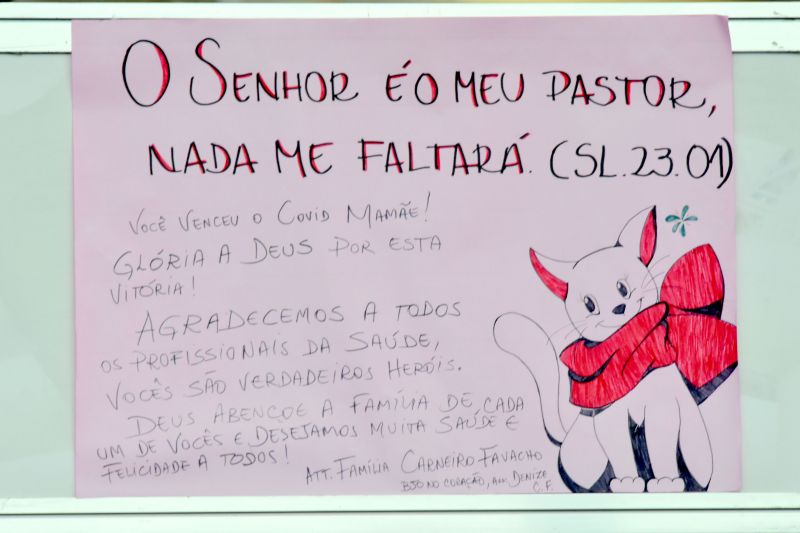 O SENHOR É O MEU PASTOR,
NADA ME FALTARÁ. (SL.23.01)
VOCÊ VENCEU O COVID MAMÃE!
GLÓRIA A DEUS POR ESTA
VITÓRIA!
AGRADECEMOS A TODOS
OS PROFISSIONAIS DA SAÚDE,
VOCÊS SÃO VERDADEIROS HERÓIS.
DEUS ABENÇOE A FAMÍLIA DE CADA
UM DE VOCÊS E DESEJAMOS MUITA SAÚDE E
FELICIDADE A TODOS!
ATT. FAMÍLIA CARNEIRO FAVACHO
BJO NO CORAÇÃO, DENIZE
C.F.